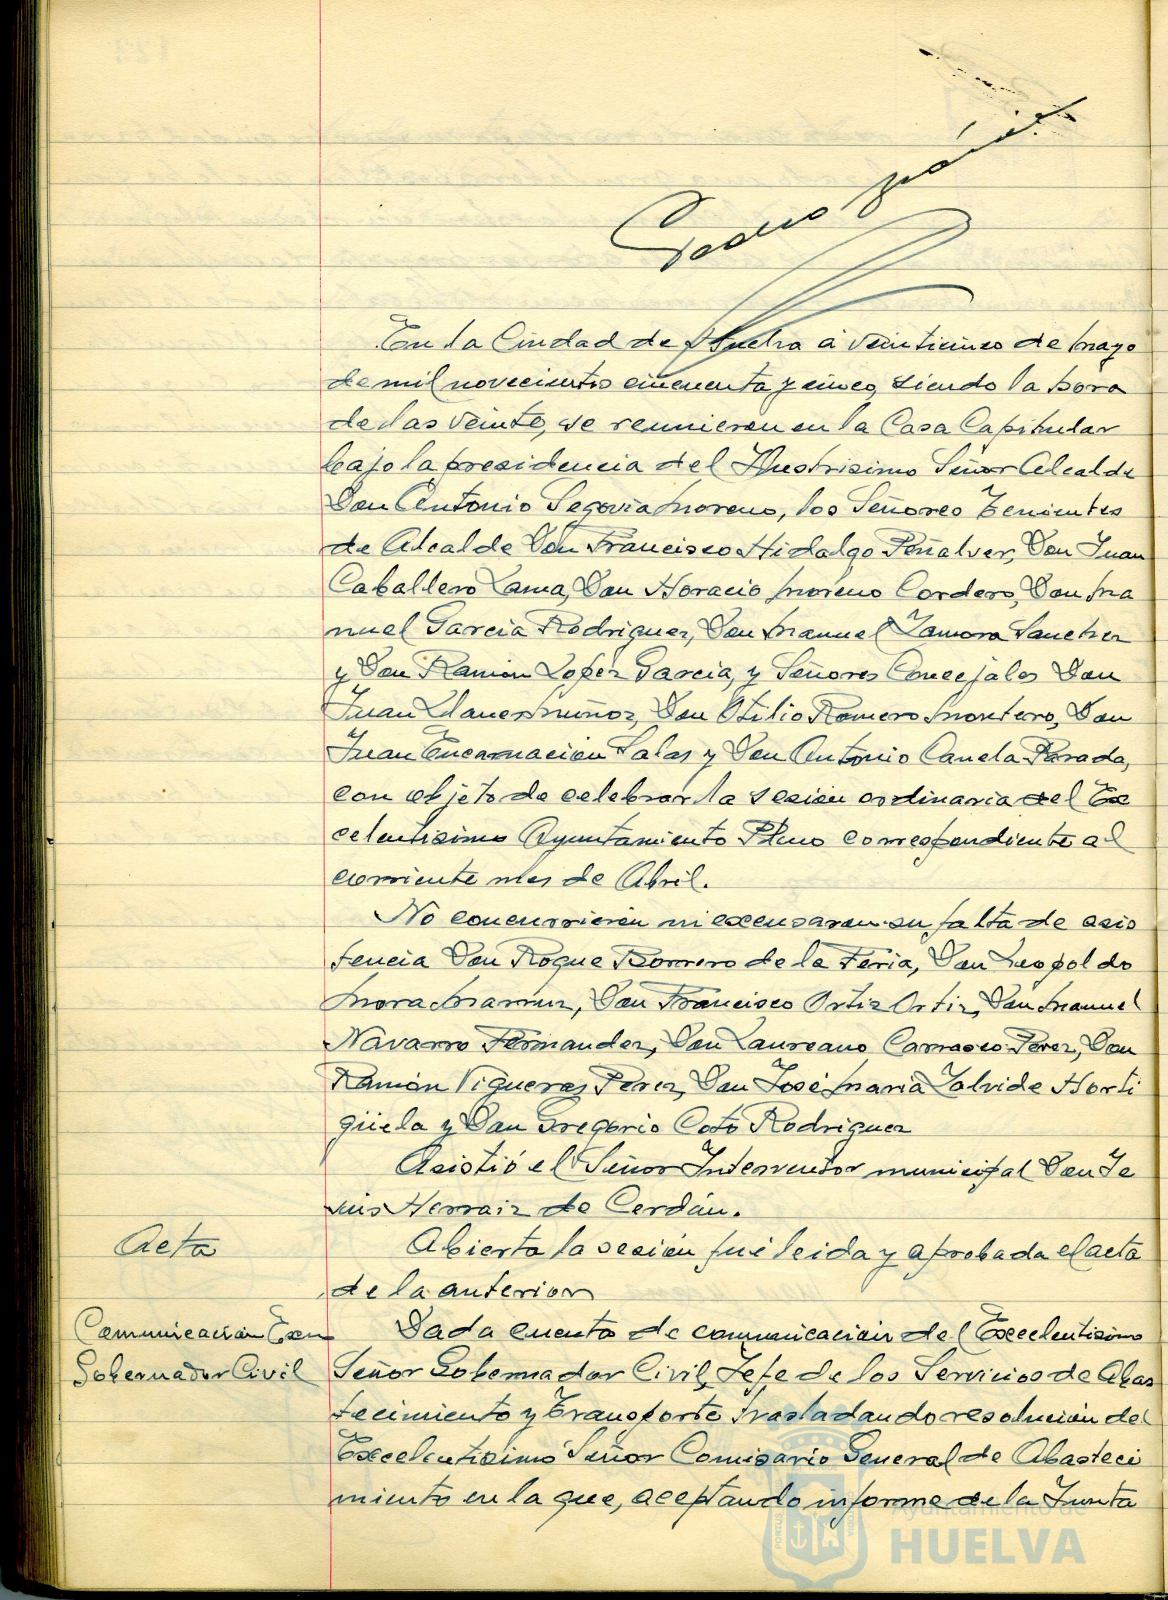 En la Ciudad de Huelva a veinticinco de mayo
de mil novecientos cincuenta y cinco, siendo la hora
de las veinte, se reunieron en la Casa Capitular
bajo la presidencia del Ilustrisimo Señor Alcalde
Don Antonio Segovia Moreno, los Señores Tenientes
de Alcalde Don Francisco Hidalgo Peñalver, Don Juan
Caballero Lama, Don Horacio Moreno Cordero, Don Ma
nuel García Rodriguez, Don Manuel Zamora Sanchez
y Don Ramón López García, y Señores Concejales Don
Juan Llanes Muñoz, Don Otilio Romero Montero, Don
Juan Encarnación Salas y Don Antonio Canela Parada,
con objeto de celebrar la sesión ordinaria del Ex
celentisimo Ayuntamiento Pleno correspondiente al
corriente mes de Abril.
No concurrieron ni excusaron su falta de asis
tencia Don Roque Borrero de la Feria, Don Leopoldo
Mora, Don Francisco Ortiz Ortiz, Don Manuel
Navarro Fernandez, Don Laureano Carrasco Perez, Don
Ramón Vigueras Perez, Don José María Zalvide Horti
güela y Don Gregorio Coto Rodriguez
Asistió el Señor Interventor municipal Don Je
sús Herraiz de Cerdán.
Acta
Abierta la sesión fué leida y aprobada el acta
de la anterior
Comunicación Exmo
Gobernador Civil
Dada cuenta de comunicación del Excelentisimo
Señor Gobernador Civil, Jefe de los Servicios de Abas
tecimiento y Transporte trasladando resolución del
Excelentisimo Señor Comisario General de Abasteci
miento en la que, aceptando informe de la Junta
Ayuntamiento de
HUELVA